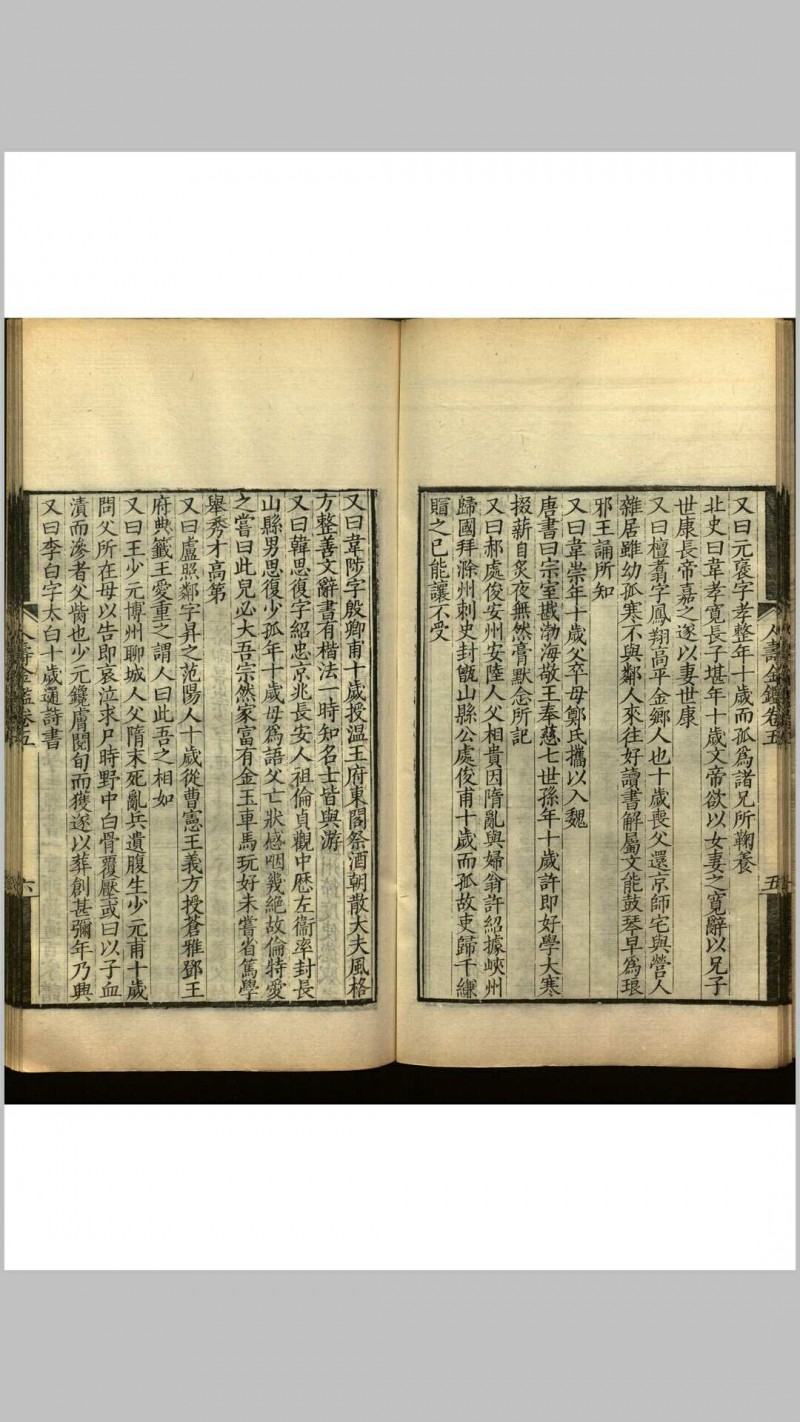 又曰元襃字孝整年十歲而孤爲諸兄所鞠養
北史曰韋孝寛長子堪年十歲文帝欲以女妻之寛辭以兄子
世康長帝嘉之遂以妻世康
又曰檀翥字鳳翔高平金鄉人也十歲喪父還京師宅與營人
雜居雖幼孤寒不與鄰人來往好讀書解屬文能鼓琴早爲琅
邪王誦所知
又曰韋崇年十歲父卒母鄭氏攜以入魏
唐書曰宗室戡渤海敬王奉慈七世孫年十歲許即好學大寒
掇薪自炙夜無然膏默念所記
又曰郝處俊安州安陸人父相貴因隋亂與婦翁許紹據峽州
歸國拜滁州刺史封甑山縣公處俊甫十歲而孤故吏歸千縑
賵之已能讓不受
人壽金鑑卷五
五
又曰韋陟字殷卿甫十歲授温王府東閣祭酒朝散大夫風格
方整善文辭書有楷法一時知名士皆與游
又曰韓思復字紹忠京兆長安人祖倫貞觀中歴左衞率封長
山縣男思復少孤年十歲母爲語父亡狀感咽幾絶故倫特愛
之嘗曰此兒必大吾宗然家富有金玉車馬玩好未嘗省篤學
舉秀才高第
又曰盧照鄰字昇之范陽人十歲從曹憲王義方授蒼雅鄧王
府典籤王愛重之謂人曰此吾之相如
又曰王少元博州聊城人父隋末死亂兵遺腹生少元甫十歲
問父所在母以告即哀泣求尸時野中白骨覆壓或曰以子血
漬而滲者父胔也少元鑱膚閱旬而獲遂以葬創甚彌年乃興
又曰李白字太白十歲通詩書
人壽金鑑卷五
六